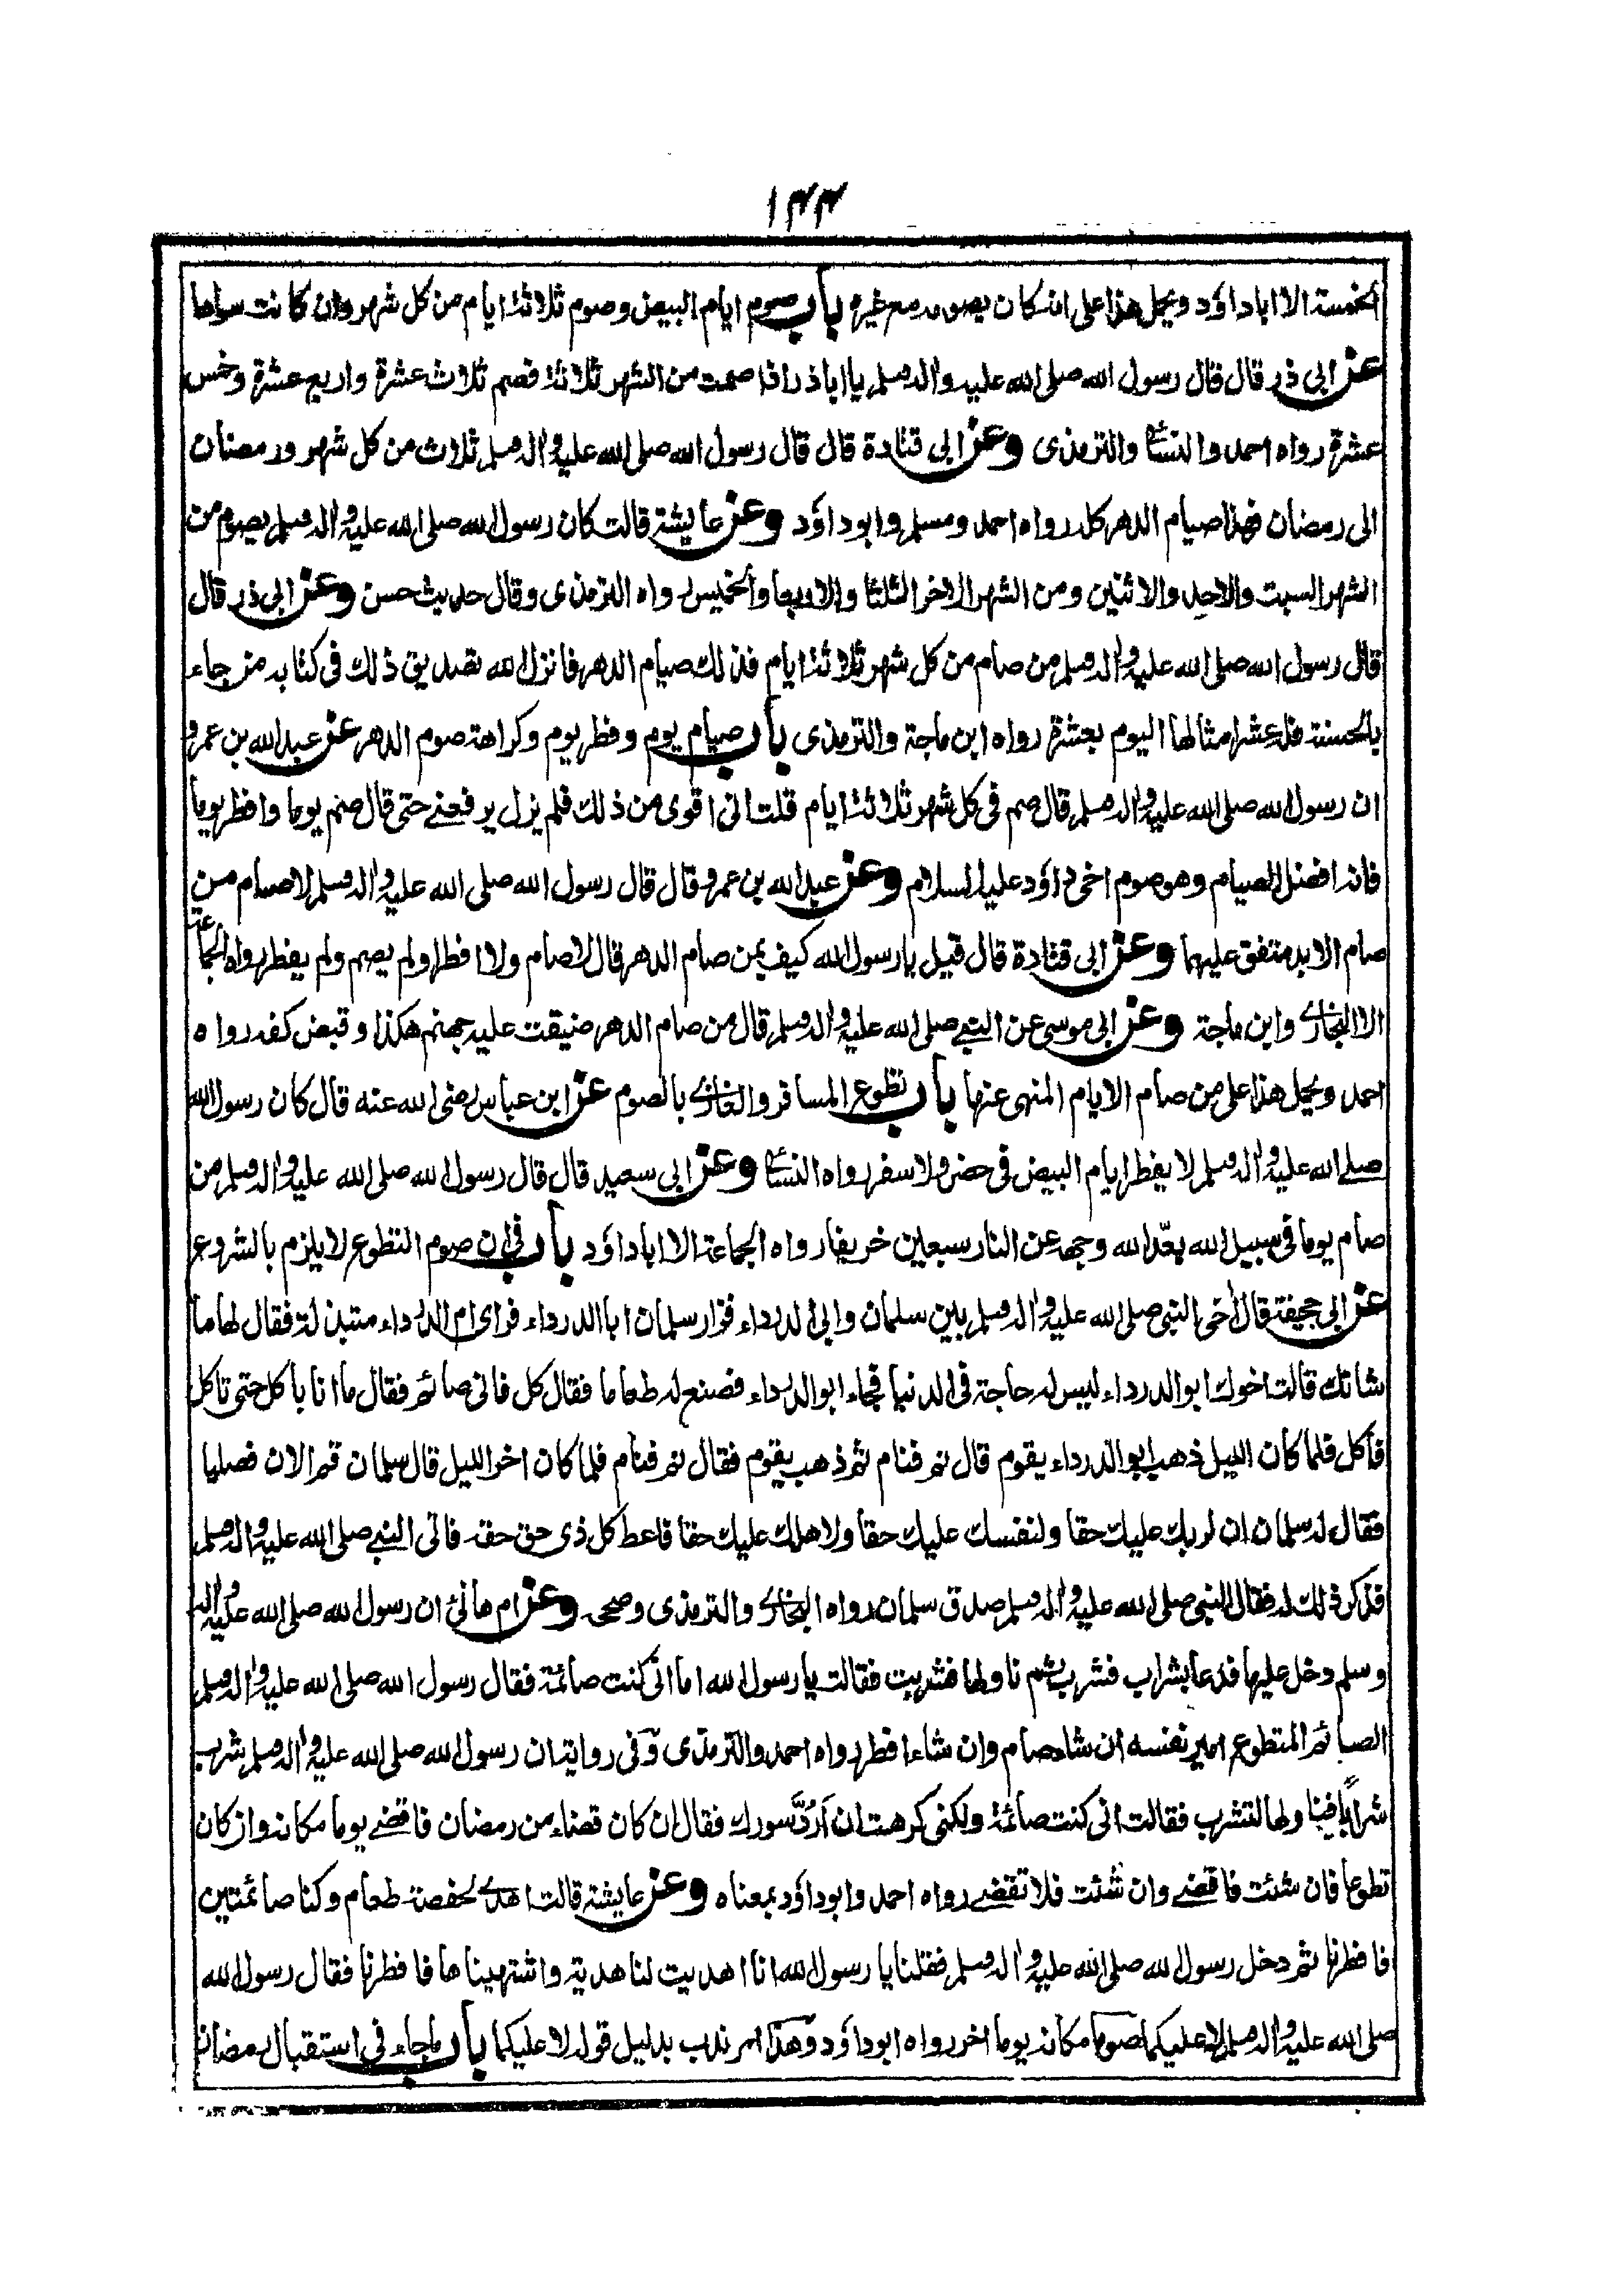 ١٣٣
الخمسة الا ابا داؤد ويحمل هذا على انه كان يصومه مع غيره باب صوم ايام البيض وصوم ثلاثة ايام من كل شهر وان كانت سواها
عن ابى ذر قال قال رسول الله صلى الله عليه واله وسلم يا ابا ذر اذا صمت من الشهر ثلاثة فصم ثلاث عشرة واربع عشرة وخمس
عشرة رواه احمد والنسائى والترمذى وعن ابى قتادة قال قال رسول الله صلى الله عليه واله وسلم ثلاث من كل شهر ورمضان
الى رمضان فهذا صيام الدهر كله رواه احمد ومسلم وابو داؤد وعن عايشة قالت كان رسول الله صلى الله عليه واله وسلم يصوم من
الشهر السبت والاحد والاثنين ومن الشهر الاخر الثلثا والاربعا والخميس رواه الترمذى وقال حديث حسن وعن ابى ذر قال
قال رسول الله صلى الله عليه واله وسلم من صام من كل شهر ثلاثة ايام فذلك صيام الدهر فانزل الله تصديق ذلك فى كتابه من جاء
بالحسنة فله عشر امثالها اليوم بعشرة رواه ابن ماجة والترمذى باب صيام يوم وفطر يوم وكراهة صوم الدهر عن عبد الله بن عمرو
ان رسول الله صلى الله عليه واله وسلم قال صم فى كل شهر ثلاثة ايام قلت انى اقوى من ذلك فلم يزل يرفعنى حتى قال صم يوما وافطر يوما
فانه افضل الصيام وهو صوم اخى داؤد عليه السلام وعن عبد الله بن عمرو قال قال رسول الله صلى الله عليه واله وسلم لا صام من
صام الابد متفق عليهما وعن ابى قتادة قال قيل يا رسول الله كيف بمن صام الدهر قال لا صام ولا افطر او لم يصم ولم يفطر رواه الجماعة
الا البخارى وابن ماجة وعن ابى موسى عن النبى صلى الله عليه واله وسلم قال من صام الدهر ضيقت عليه جهنم هكذا وقبض كفه رواه
احمد ويحمل هذا على من صام الايام المنهى عنها باب تطوع المسافر والغازى بالصوم عن ابن عباس رضى الله عنه قال كان رسول الله
صلى الله عليه واله وسلم لا يفطر ايام البيض فى حضر ولا سفر رواه النسائى وعن ابى سعيد قال قال رسول الله صلى الله عليه واله وسلم من
صام يوما فى سبيل الله بعّد الله وجهه عن النار سبعين خريفا رواه الجماعة الا ابا داؤد باب فى ان صوم التطوع لا يلزم بالشروع
عن ابى جحيفة قال آخى النبى صلى الله عليه واله وسلم بين سلمان وابى الدرداء فزار سلمان ابا الدرداء فراى ام الدرداء متبذلة فقال لها ما
شانك قالت اخوك ابو الدرداء ليس له حاجة فى الدنيا فجاء ابو الدرداء فصنع له طعاما فقال كل فانى صائم فقال ما انا باكل حتى تاكل
فاكل فلما كان الليل ذهب ابو الدرداء يقوم قال نم فنام ثم ذهب يقوم فقال نم فنام فلما كان اخر الليل قال سلمان قم الان فصليا
فقال له سلمان ان لربك عليك حقا ولنفسك عليك حقا ولاهلك عليك حقا فاعط كل ذى حق حقه فاتى النبى صلى الله عليه واله وسلم
فذكر ذلك له فقال النبى صلى الله عليه واله وسلم صدق سلمان رواه البخارى والترمذى وصححه وعن ام هانئ ان رسول الله صلى الله عليه واله
وسلم دخل عليها فدعا بشراب فشرب ثم ناولها فشربت فقالت يا رسول الله اما انى كنت صائمة فقال رسول الله صلى الله عليه واله وسلم
الصائم المتطوع امير نفسه ان شاء صام وان شاء افطر رواه احمد والترمذى وفى رواية ان رسول الله صلى الله عليه واله وسلم شرب
شرابا فناولها لتشرب فقالت انى كنت صائمة ولكنى كرهت ان اَرُدَّ سورك فقال ان كان قضاء من رمضان فاقضى يوما مكانه وان كان
تطوعا فان شئت فاقضى وان شئت فلا تقضى رواه احمد وابو داؤد بمعناه وعن عايشة قالت اهدى لحفصة طعام وكنا صائمتين
فافطرنا ثم دخل رسول الله صلى الله عليه واله وسلم فقلنا يا رسول الله انا اهديت لنا هدية واشتهيناها فافطرنا فقال رسول الله
صلى الله عليه واله وسلم لا عليكما صوما مكانه يوما اخر رواه ابو داؤد وهذا امر ندب بدليل قوله لا عليكما باب ما جاء فى استقبال رمضان